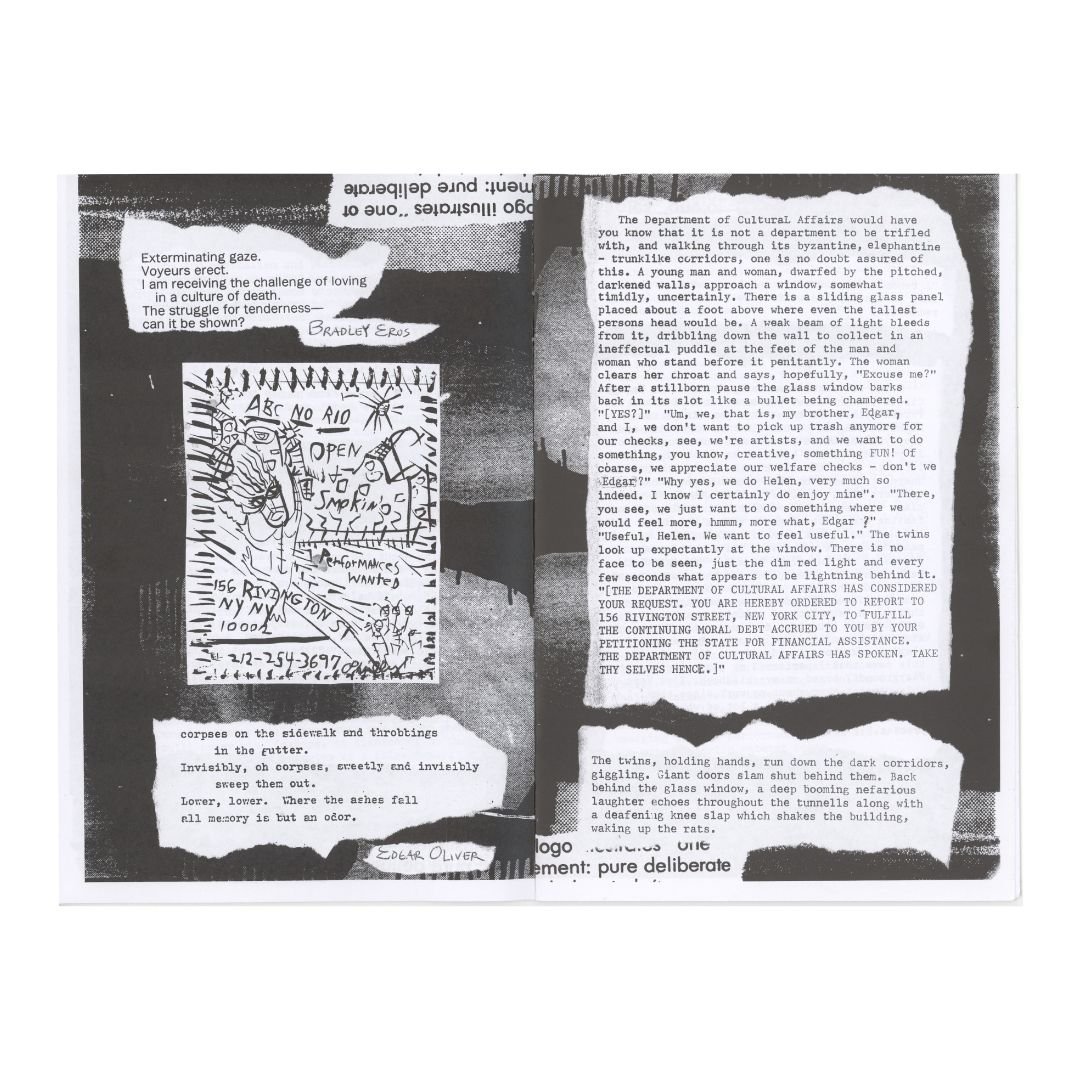 ogo illustrates "one of
ment: pure deliberate
Exterminating gaze.
Voyeurs erect.
I am receiving the challenge of loving
in a culture of death.
The struggle for tenderness—
can it be shown?
BRADLEY EROS
ABC NO RIO
OPEN
Smokin'
Performances
WANTED
156 RIVINGTON ST
NY NY
10002
212-254-3697
corpses on the sidewalk and throbbings
in the gutter.
Invisibly, oh corpses, sweetly and invisibly
sweep them out.
Lower, lower.  Where the ashes fall
all memory is but an odor.
EDGAR OLIVER
The Department of Cultural Affairs would have
you know that it is not a department to be trifled
with, and walking through its byzantine, elephantine
- trunklike corridors, one is no doubt assured of
this. A young man and woman, dwarfed by the pitched,
darkened walls, approach a window, somewhat
timidly, uncertainly. There is a sliding glass panel
placed about a foot above where even the tallest
persons head would be. A weak beam of light bleeds
from it, dribbling down the wall to collect in an
ineffectual puddle at the feet of the man and
woman who stand before it penitantly. The woman
clears her throat and says, hopefully, "Excuse me?"
After a stillborn pause the glass window barks
back in its slot like a bullet being chambered.
"[YES?]" "Um, we, that is, my brother, Edgar,
and I, we don't want to pick up trash anymore for
our checks, see, we're artists, and we want to do
something, you know, creative, something FUN! Of
coarse, we appreciate our welfare checks - don't we
Edgar?" "Why yes, we do Helen, very much so
indeed. I know I certainly do enjoy mine".  "There,
you see, we just want to do something where we
would feel more, hmmm, more what, Edgar ?"
"Useful, Helen. We want to feel useful." The twins
look up expectantly at the window. There is no
face to be seen, just the dim red light and every
few seconds what appears to be lightning behind it.
"[THE DEPARTMENT OF CULTURAL AFFAIRS HAS CONSIDERED
YOUR REQUEST. YOU ARE HEREBY ORDERED TO REPORT TO
156 RIVINGTON STREET, NEW YORK CITY, TO FULFILL
THE CONTINUING MORAL DEBT ACCRUED TO YOU BY YOUR
PETITIONING THE STATE FOR FINANCIAL ASSISTANCE.
THE DEPARTMENT OF CULTURAL AFFAIRS HAS SPOKEN. TAKE
THY SELVES HENCE.]"
The twins, holding hands, run down the dark corridors,
giggling. Giant doors slam shut behind them. Back
behind the glass window, a deep booming nefarious
laughter echoes throughout the tunnells along with
a deafening knee slap which shakes the building,
waking up the rats.
logo illustrates "one
ement: pure deliberate